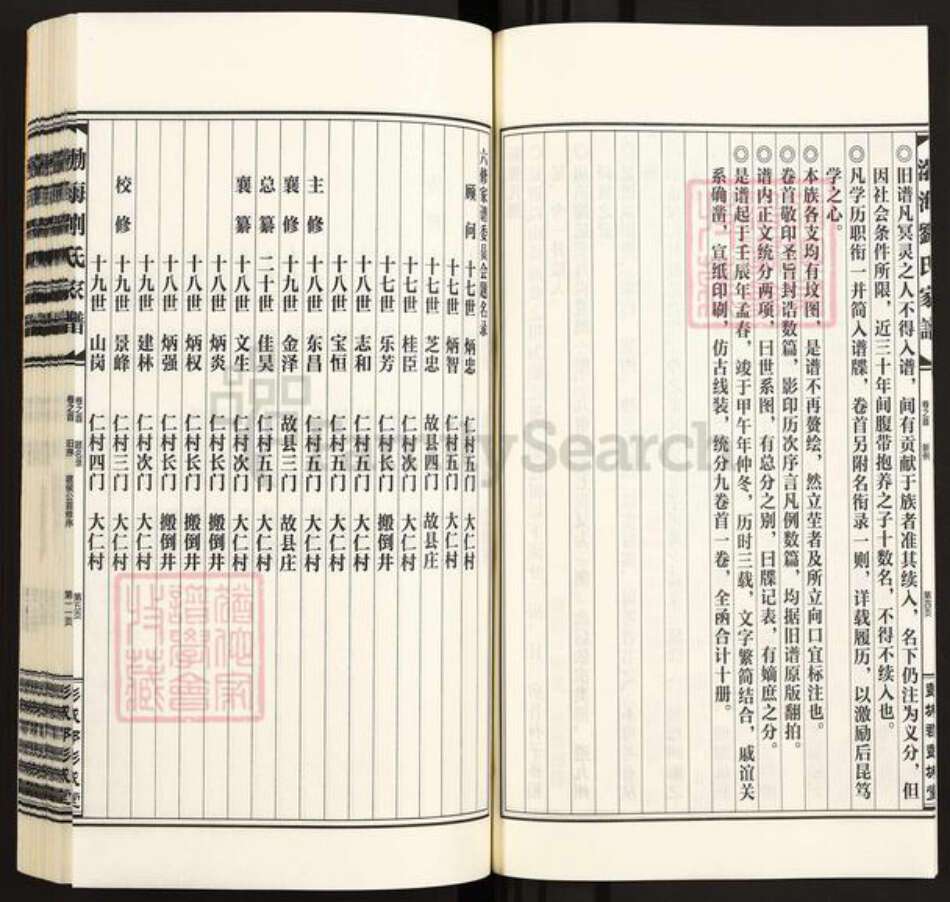 渤海劉氏家譜
◎旧谱凡冥灵之人不得入谱，间有贡献于族者准其续入，名下仍注为义分，但
因社会条件所限，近三十年间腹带抱养之子十数名，不得不续入也。
◎凡学历职衔一并简入谱牒，卷首另附名衔录一则，详载履历，以激励后昆笃
学之心。
◎本族各支均有坟图，是谱不再赘绘，然立茔者及所立向口宜标注也。
◎卷首敬印圣旨封诰数篇，影印历次序言凡例数篇，均据旧谱原版翻拍。
◎谱内正文统分两项，曰世系图，有总分之别，曰牒记表，有嫡庶之分。
◎是谱起于壬辰年孟春，竣于甲午年仲冬，历时三载，文字繁简结合，戚谊关
系确凿，宣纸印刷，仿古线装，统分九卷首一卷，全函合计十册。
六修家谱委员会题名录
顾问 十七世 炳忠 仁村五门 大仁村
十七世 炳智 仁村五门 大仁村
十七世 芝忠 故县四门 故县庄
十七世 桂臣 仁村次门 大仁村
十七世 乐芳 仁村长门 搬倒井
十八世 志和 仁村五门 大仁村
十八世 宝恒 仁村五门 大仁村
主修 十八世 东昌 仁村五门 大仁村
襄修 十九世 金泽 故县三门 故县庄
总纂 二十世 佳昊 仁村五门 大仁村
襄纂 十八世 文生 仁村次门 大仁村
十八世 炳炎 仁村长门 搬倒井
十八世 炳权 仁村长门 搬倒井
十八世 炳强 仁村长门 搬倒井
十九世 建林 仁村次门 大仁村
校修 十九世 景峰 仁村三门 大仁村
十九世 山岗 仁村四门 大仁村
渤海劉氏家譜
卷之首
旧序
第五页
第一一页
彭城郡彭城堂